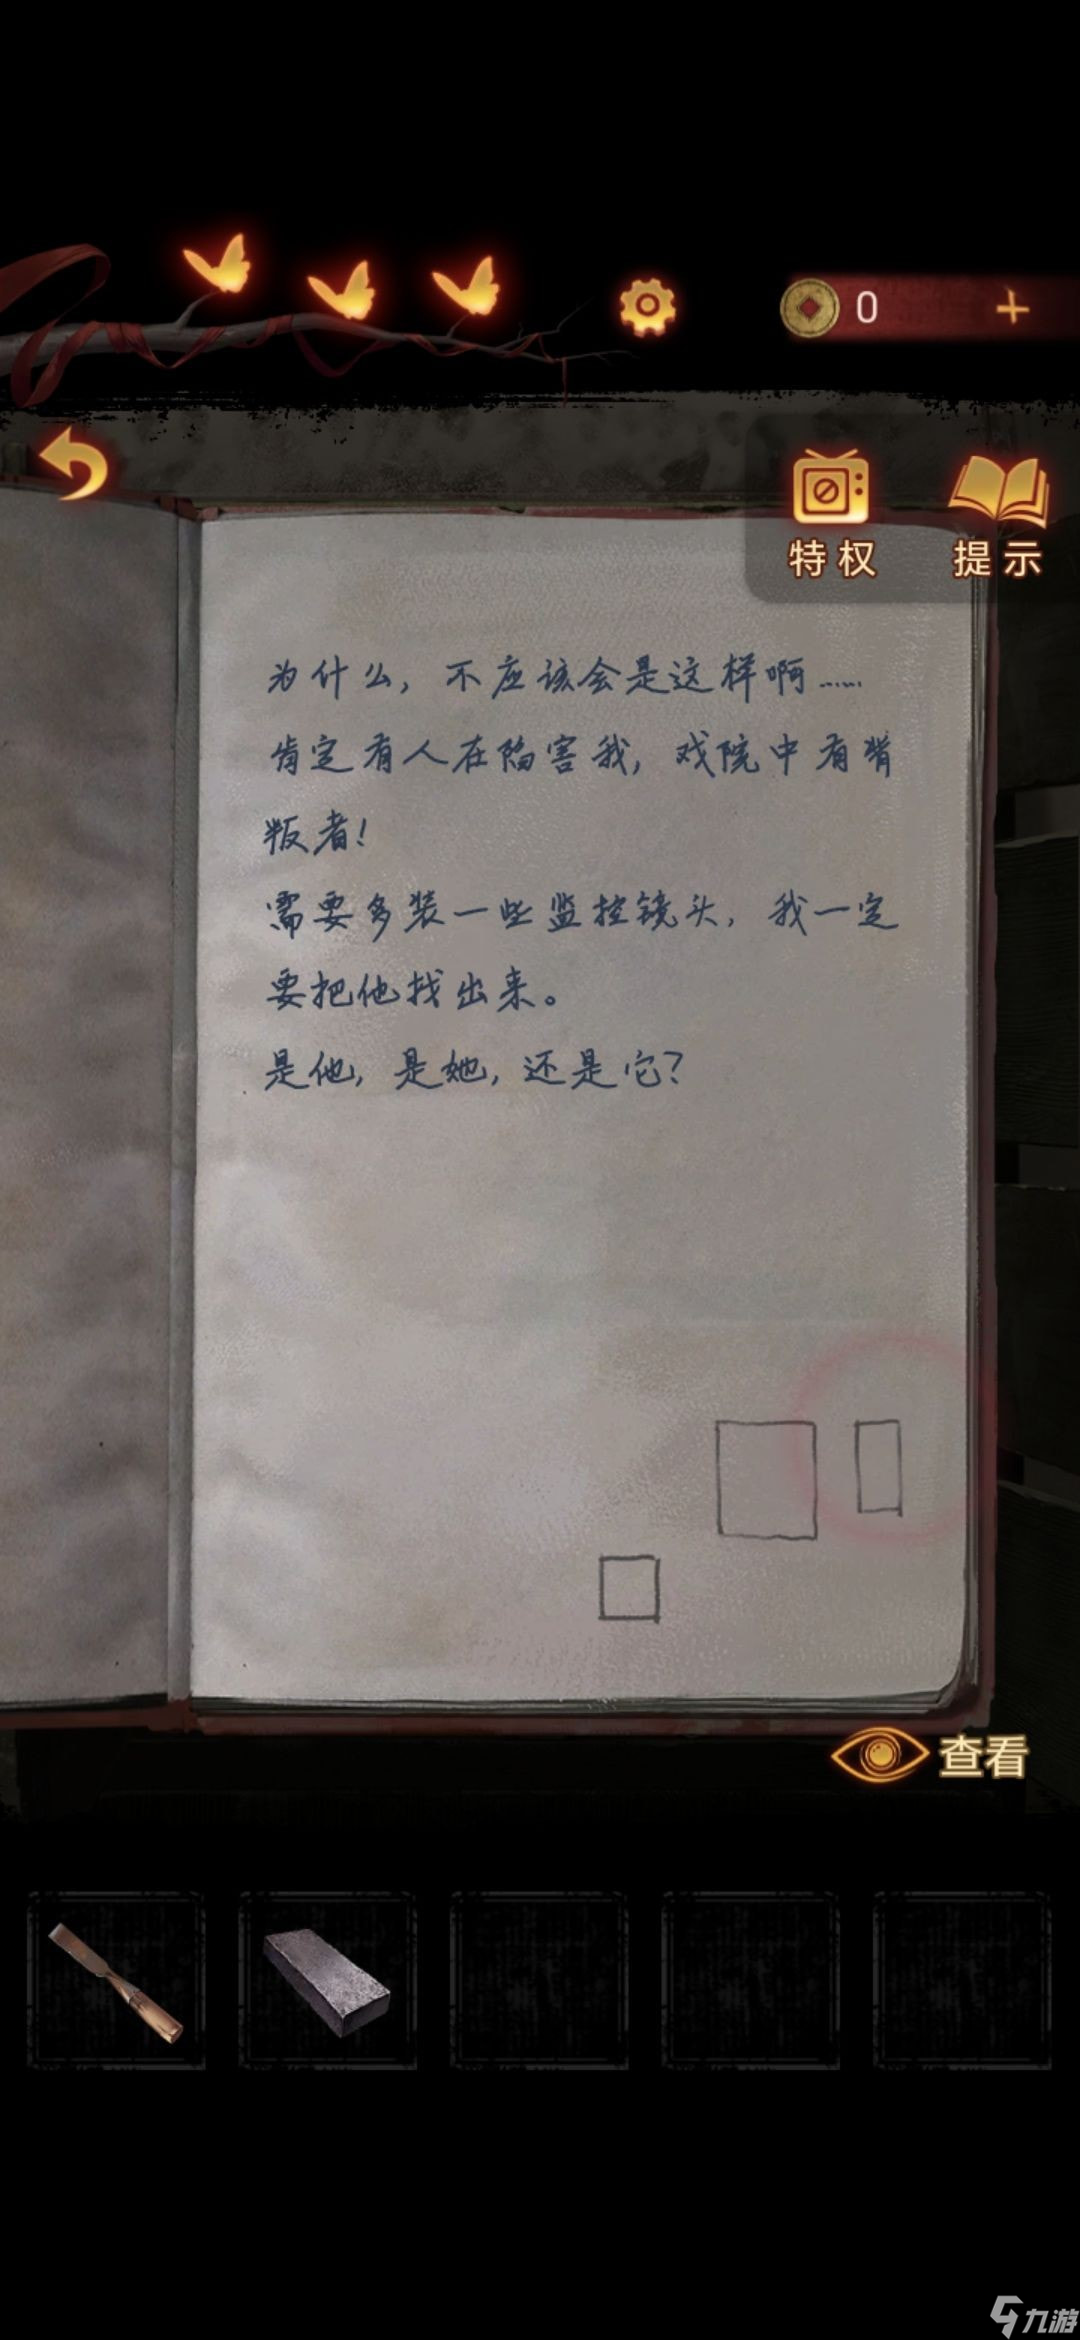 0
特权
提示
为什么，不应该会是这样啊……
肯定有人在陷害我，戏院中有背
叛者！
需要多装一些监控镜头，我一定
要把他找出来。
是他，是她，还是它？
查看
九游